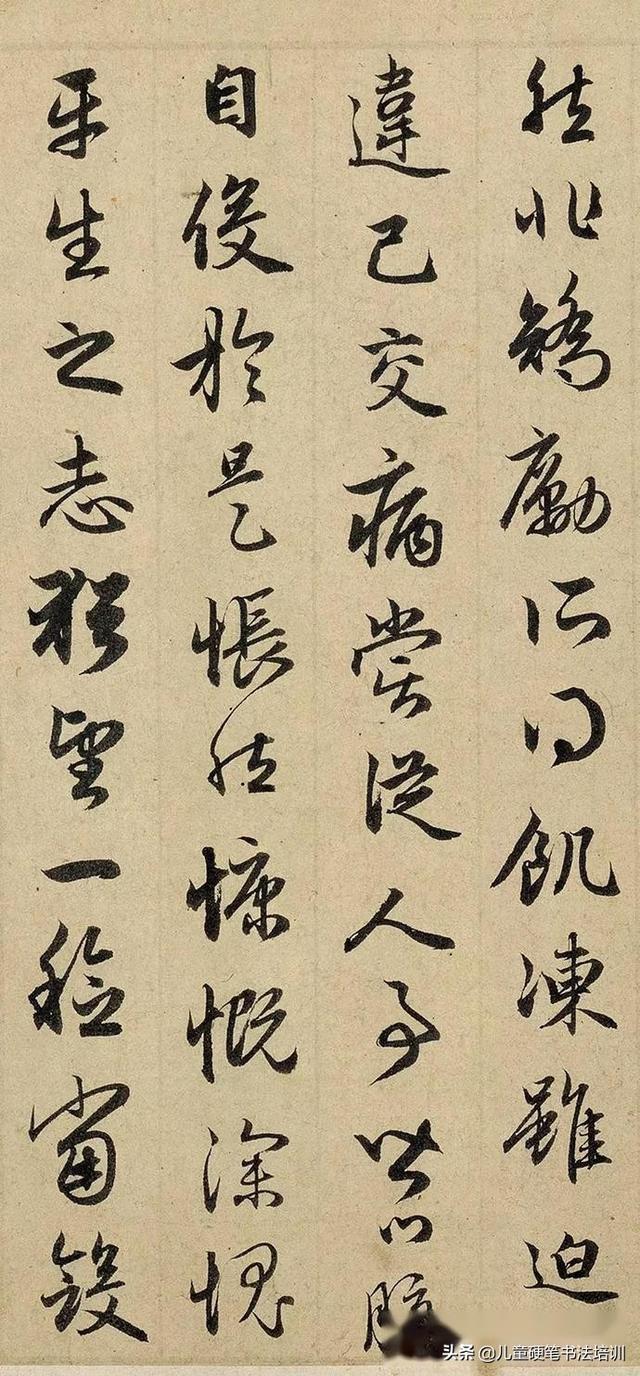 然非矯勵所得飢凍雖迫
違己交病嘗從人事皆口腹
自役於是悵然慷慨深愧
平生之志猶望一稔當斂
头条 @儿童硬笔书法培训